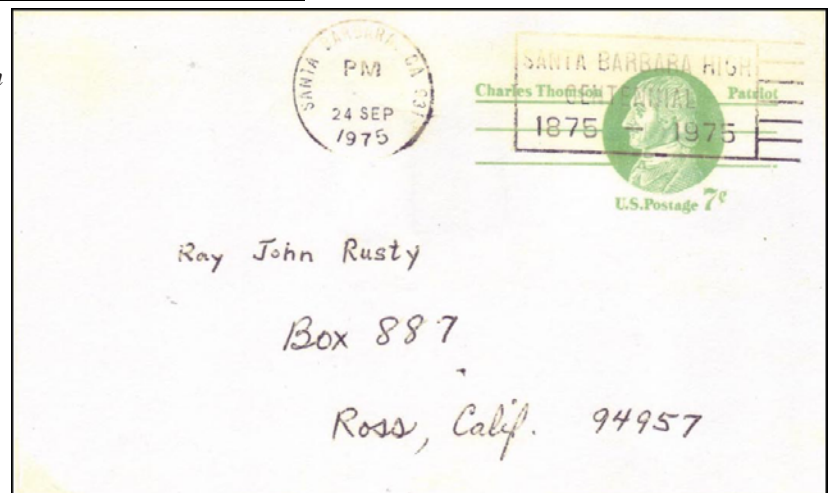 SANTA BARBARA, CA 931
PM
24 SEP
1975
SANTA BARBARA HIGH
CENTENNIAL
1875 - 1975
Charles Thomson Patriot
U.S. Postage 7¢
Ray John Rusty
Box 887
Ross, Calif. 94957